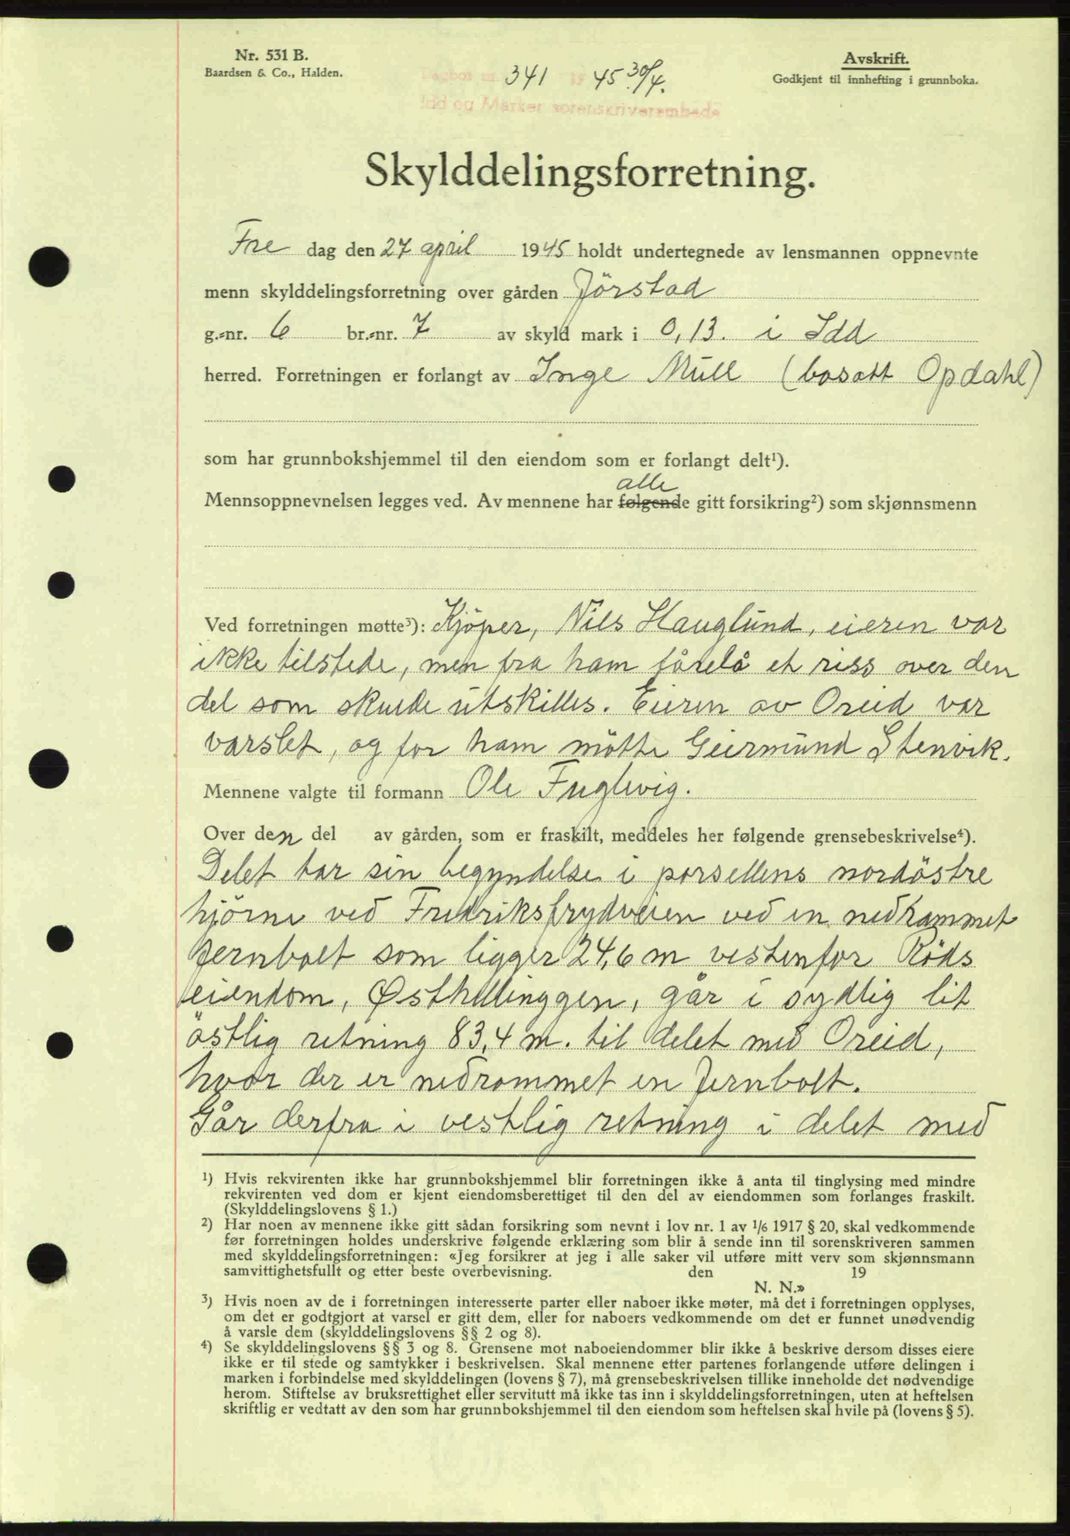 Nr. 531 B.
Baardsen & Co., Halden.
Avskrift.
Godkjent til innhefting i grunnboka.
Dagbok nr. 341 1945 30/4.
Idd og Marker sorenskriverembede
Skylddelingsforretning.
Fre dag den 27 april 1945 holdt undertegnede av lensmannen oppnevnte
menn skylddelingsforretning over gården Jörstad
g.-nr. 6 br.-nr. 7 av skyld mark i 0,13. i Idd
herred. Forretningen er forlangt av Inge Müll (bosatt Opdahl)
som har grunnbokshjemmel til den eiendom som er forlangt delt¹).
alle
Mennsoppnevnelsen legges ved. Av mennene har følgende gitt forsikring²) som skjønnsmenn
Ved forretningen møtte³): Kjöper, Nils Hauglund, eieren var
ikke tilstede, men fra ham förelå et riss over den
del som skulde utskilles. Eieren av Oreid var
varslet, og for ham mötte Geirmund Stenvik.
Mennene valgte til formann Ole Fuglevig.
Over den del av gården, som er fraskilt, meddeles her følgende grensebeskrivelse⁴).
Delet tar sin begyndelse i parsellens nordöstre
hjörne ved Fredriksfrydveien ved en nedrammet
Jernbolt som ligger 24,6 m vestenfor Röds
eiendom, Østkillinggen, går i sydlig lit
östlig retning 83,4 m. til delet med Oreid,
hvor der er nedrammet en Jernbolt.
Går derfra i vestlig retning i delet med
¹) Hvis rekvirenten ikke har grunnbokshjemmel blir forretningen ikke å anta til tinglysing med mindre
rekvirenten ved dom er kjent eiendomsberettiget til den del av eiendommen som forlanges fraskilt.
(Skylddelingslovens § 1.)
²) Har noen av mennene ikke gitt sådan forsikring som nevnt i lov nr. 1 av 1/6 1917 § 20, skal vedkommende
før forretningen holdes underskrive følgende erklæring som blir å sende inn til sorenskriveren sammen
med skylddelingsforretningen: «Jeg forsikrer at jeg i alle saker vil utføre mitt verv som skjønnsmann
samvittighetsfullt og etter beste overbevisning. den 19
N. N.»
³) Hvis noen av de i forretningen interesserte parter eller naboer ikke møter, må det i forretningen opplyses,
om det er godtgjort at varsel er gitt dem, eller for naboers vedkommende om det er funnet unødvendig
å varsle dem (skylddelingslovens §§ 2 og 8).
⁴) Se skylddelingslovens §§ 3 og 8. Grensene mot naboeiendommer blir ikke å beskrive dersom disses eiere
ikke er til stede og samtykker i beskrivelsen. Skal mennene etter partenes forlangende utføre delingen i
marken i forbindelse med skylddelingen (lovens § 7), må grensebeskrivelsen tillike inneholde det nødvendige
herom. Stiftelse av bruksrettighet eller servitutt må ikke tas inn i skylddelingsforretningen, uten at heftelsen
skriftlig er vedtatt av den som har grunnbokshjemmel til den eiendom som heftelsen skal hvile på (lovens § 5).